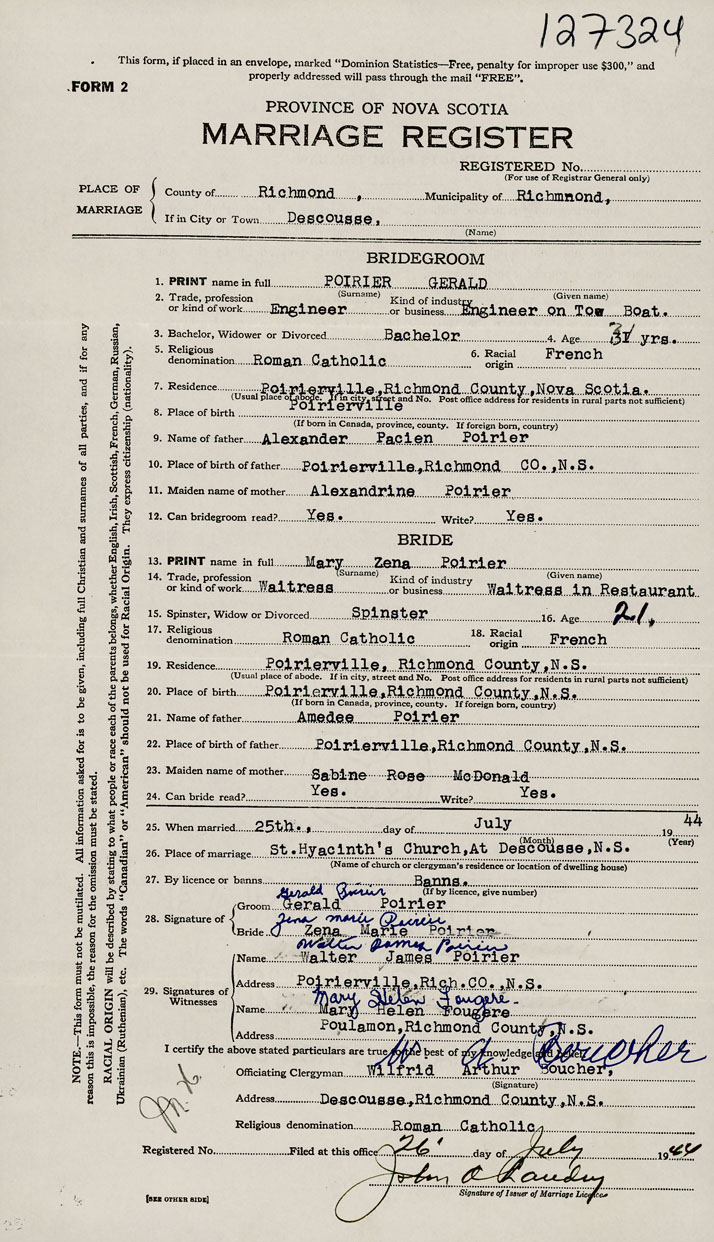 127324
This form, if placed in an envelope, marked "Dominion Statistics—Free, penalty for improper use $300," and
properly addressed will pass through the mail "FREE".
FORM 2
PROVINCE OF NOVA SCOTIA
MARRIAGE REGISTER
REGISTERED No.
(For use of Registrar General only)
PLACE OF MARRIAGE
County of Richmond , Municipality of Richmnond,
If in City or Town Descousse,
(Name)
BRIDEGROOM
1. PRINT name in full POIRIER GERALD
(Surname) (Given name)
2. Trade, profession or kind of work Engineer Kind of industry or business Engineer on Tow Boat.
3. Bachelor, Widower or Divorced Bachelor 4. Age 31 yrs.
5. Religious denomination Roman Catholic 6. Racial origin French
7. Residence Poirierville,Richmond County,Nova Scotia.
(Usual place of abode. If in city, street and No. Post office address for residents in rural parts not sufficient)
8. Place of birth Poirierville
(If born in Canada, province, county. If foreign born, country)
9. Name of father Alexander Pacien Poirier
10. Place of birth of father Poirierville,Richmond CO.,N.S.
11. Maiden name of mother Alexandrine Poirier
12. Can bridegroom read? Yes. Write? Yes.
BRIDE
13. PRINT name in full Mary Zena Poirier
(Surname) (Given name)
14. Trade, profession or kind of work Waitress Kind of industry or business Waitress in Restaurant
15. Spinster, Widow or Divorced Spinster 16. Age 21,
17. Religious denomination Roman Catholic 18. Racial origin French
19. Residence Poirierville, Richmond County,N.S.
(Usual place of abode. If in city, street and No. Post office address for residents in rural parts not sufficient)
20. Place of birth Poirierville,Richmond County,N.S.
(If born in Canada, province, county. If foreign born, country)
21. Name of father Amedee Poirier
22. Place of birth of father Poirierville,Richmond County,N.S.
23. Maiden name of mother Sabine Rose McDonald
24. Can bride read? Yes. Write? Yes.
25. When married 25th., day of July 1944
(Month) (Year)
26. Place of marriage St.Hyacinth's Church,At Descousse,N.S.
(Name of church or clergyman's residence or location of dwelling house)
27. By licence or banns Banns.
(If by licence, give number)
Gerald Poirier
28. Signature of Groom Gerald Poirier
Zena Marie Poirier
Bride Zena Marie Poirier
Walter James Poirier
29. Signatures of Witnesses
Name Walter James Poirier
Address Poirierville,Rich.CO.,N.S.
Mary Helen Fougere
Name Mary Helen Fougere
Address Poulamon,Richmond County,N.S.
I certify the above stated particulars are true to the best of my knowledge and belief.
W A Boucher
Officiating Clergyman Wilfrid Arthur Boucher,
(Signature)
Address Descousse,Richmond County,N.S.
Religious denomination Roman Catholic
Registered No. Filed at this office 26' day of July 1944
John A Landry
Signature of Issuer of Marriage Licence.
[SEE OTHER SIDE]
NOTE.—This form must not be mutilated. All information asked for is to be given, including full Christian and surnames of all parties, and if for any
reason this is impossible, the reason for the omission must be stated.
RACIAL ORIGIN will be described by stating to what people or race each of the parents belongs, whether English, Irish, Scottish, French, German, Russian,
Ukrainian (Ruthenian), etc. The words "Canadian" or "American" should not be used for Racial Origin. They express citizenship (nationality).